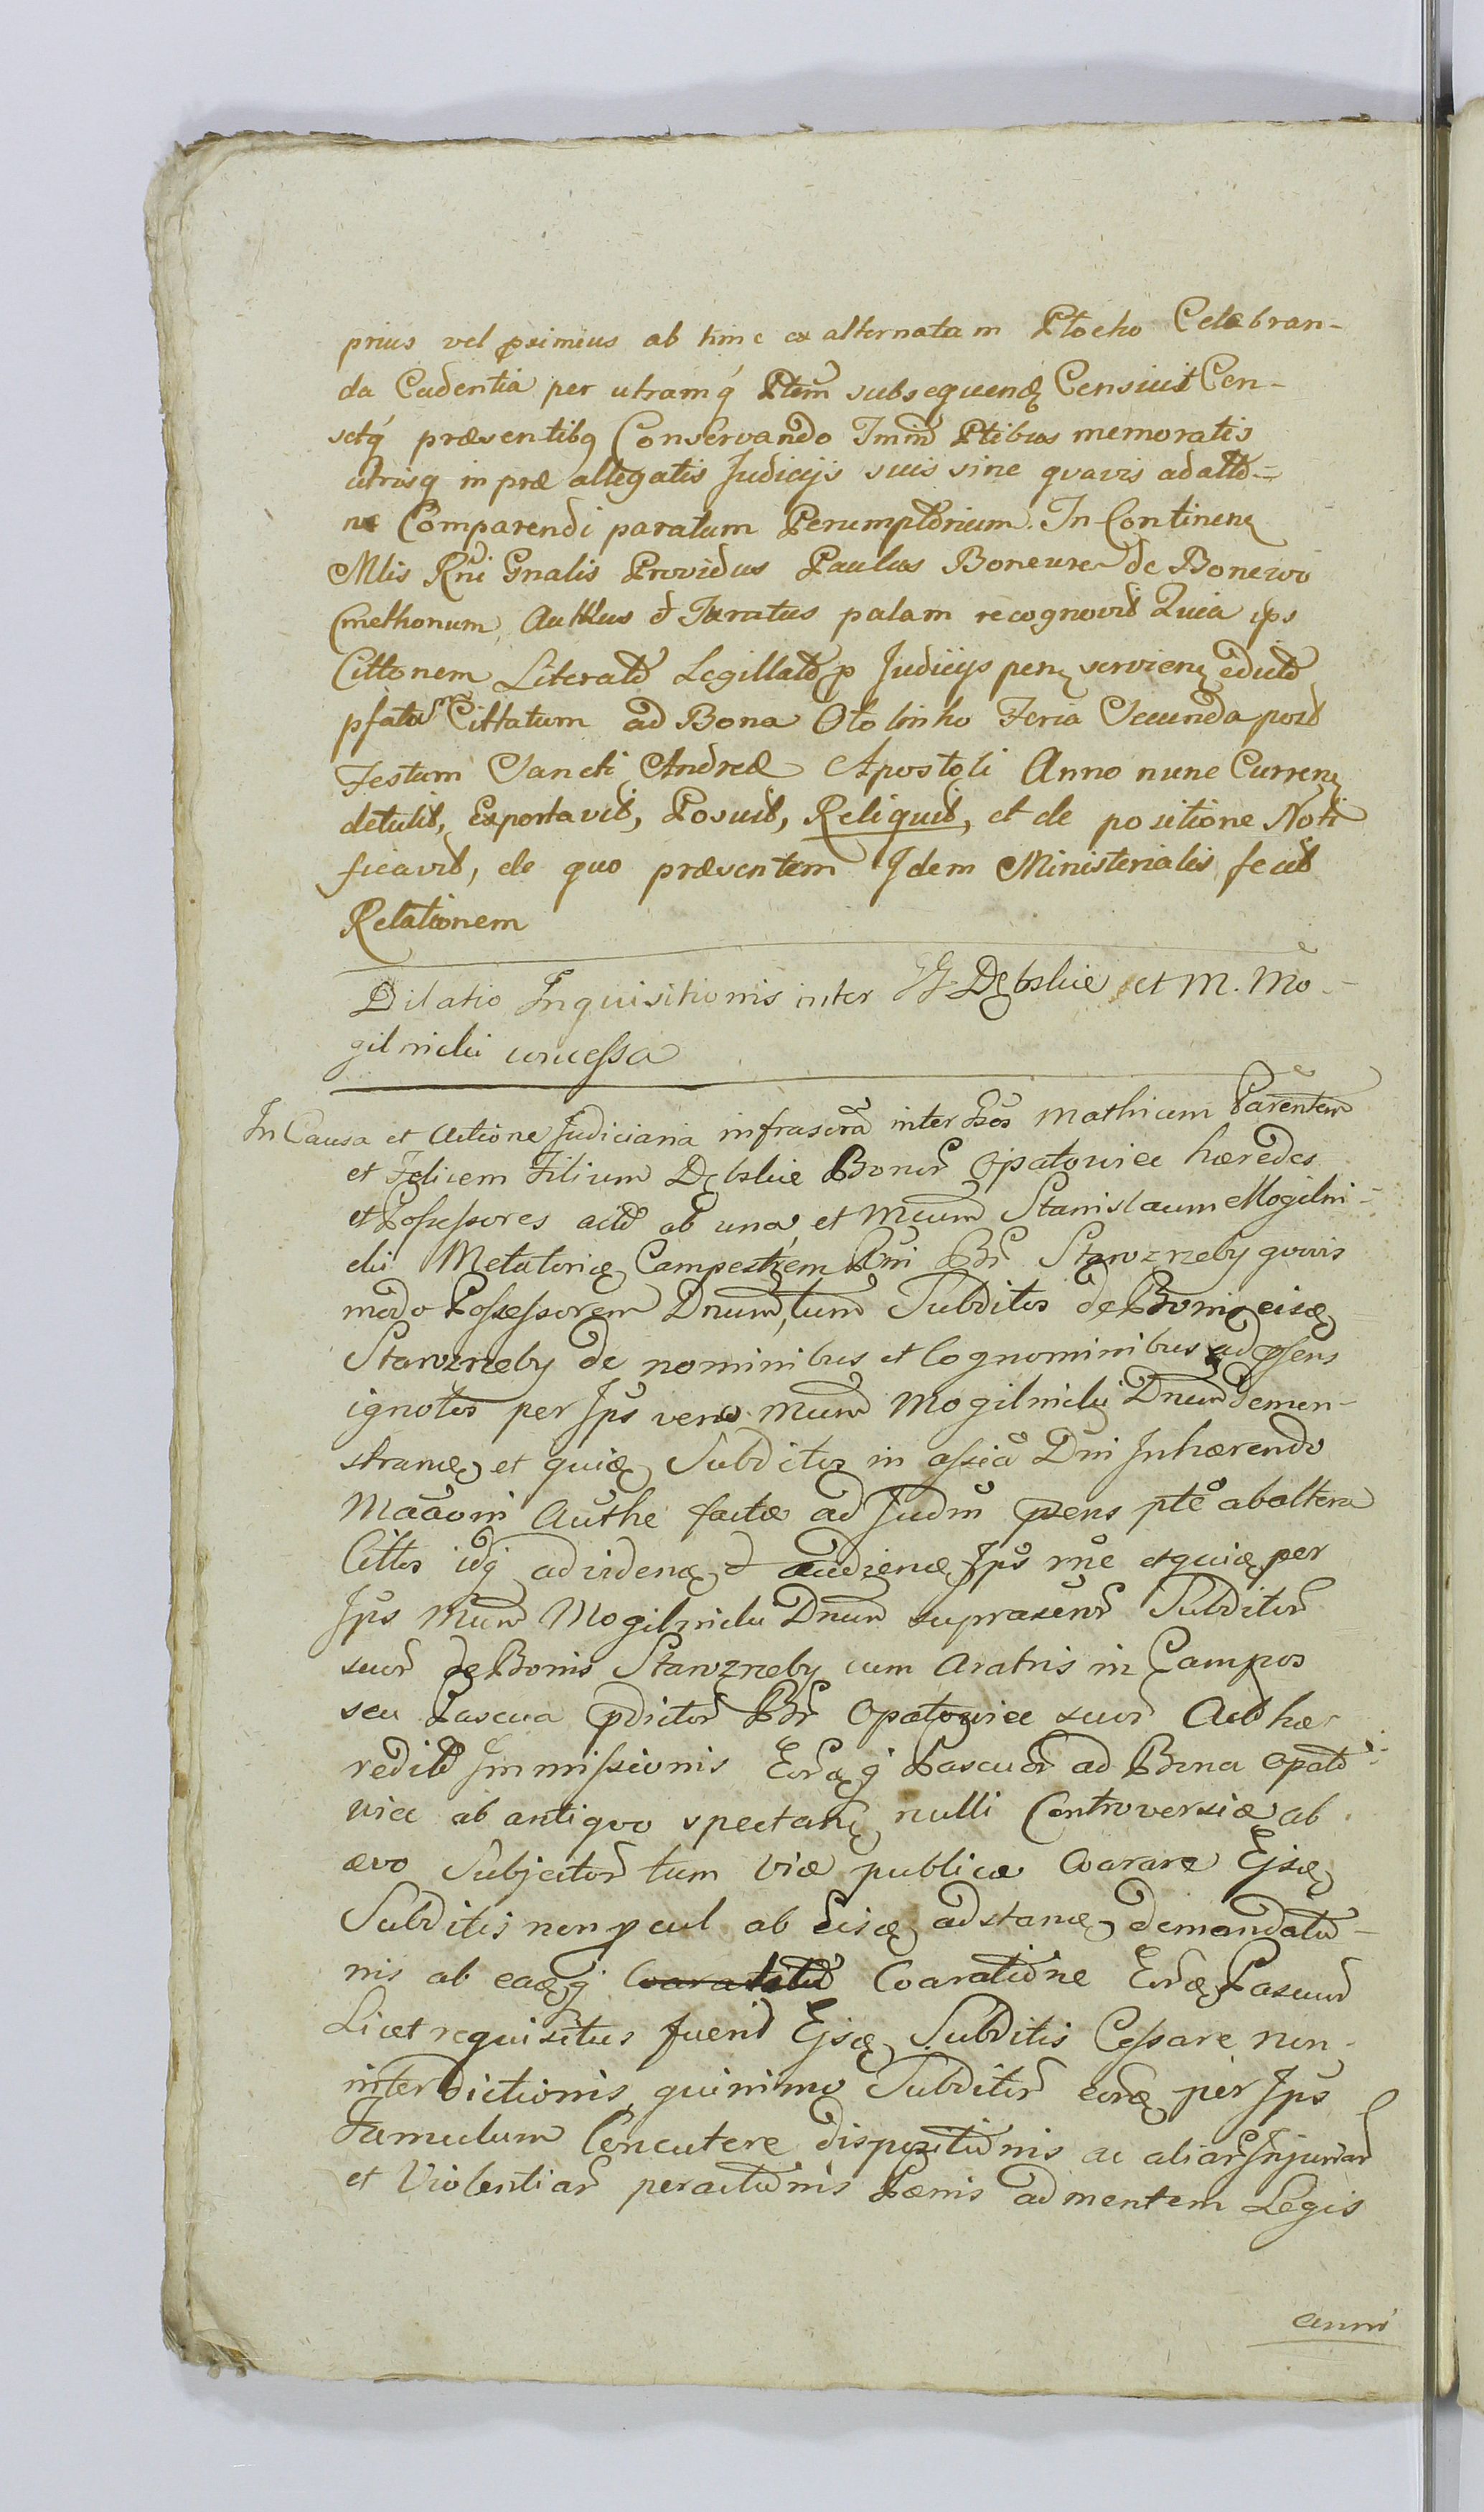 prius vel pximius ab hinc ex alternata in Plocko Celebran-
da Cadentia per utramq́ Ptem subsequen Censuit Cen-
setq́ præsentibq Conservando Imind Ptibus memoratis
utrisq in præ allegatis Judicijs suis sine quavis ad
Comparendi paratum Perumptorium. In Continen
Mlis Rni Gnalis Providus Paulus Boneure de Bonewo
Cmethonum Autthus et Juratus palam recognovit Quia ips
Cittonem Literato Legillato p Judicijs pen servien
pfatu Cittatum ad Bona Otolinko Feria Secunda post
Festum Sancti Andreæ Apostoli Anno nunc Curren
detulit, Exportavit, Posuit, Reliquit, et de positione Noti
ficavit, de quo præsentem Idem Ministerialis fecit
Relationem
Dilatio Inquisitionis inter GG Dębskie et M. Mo-
gilnicki concessa
In Causa et Actione Judiciaria infrascra inter Gsos Mathicum Parentem
et Felicem Filium Dębskie Bonor Opatowiec hæredes
et Possessores act ab una et Mcum Stanislaum Mogilni-
cki Metatoriæ Campestrem Rni Br Starozreby quovis
modo Possessorem Dnum, tum Subditos de Bonis eisd
Starozreby de nominibus et Cognominibus ad psens
ignotos per Ips vero Mum Mogilnicki Dnum demon-
stran et quiq Subditos in assia Dni Inhærendo
Authe factæ ad Judm pzens pte ab altera
Cittos idq ad viden et audien Ips me et quiq per
Ips Mum Mogilnicki Dnum suprascr Subditor
suor de Bonis Starozreby cum Aratris in Campos
seu Pascua pdictor Br Opatowiec suor Act hæ-
redit Immissionis Eordq Pascuor ad Bona Opato-
wiec ab antiquo spectan nulli Controversiæ ab
ævo Subjector tum Viæ publicæ Coarare Ejsd
Subditis non pcul ab Eisd adstan demandatio-
nis ab eadq Coaratione Eord Pascuor
Licet requisitus fuerit Ejsd Subditis Cessare non
interdictionis, quinimo Subditor eord per Ips
Famulum Concutere dispositionis ac aliar Injuriar
et Violentiar peractionis Pænis ad mentem Legis
anni